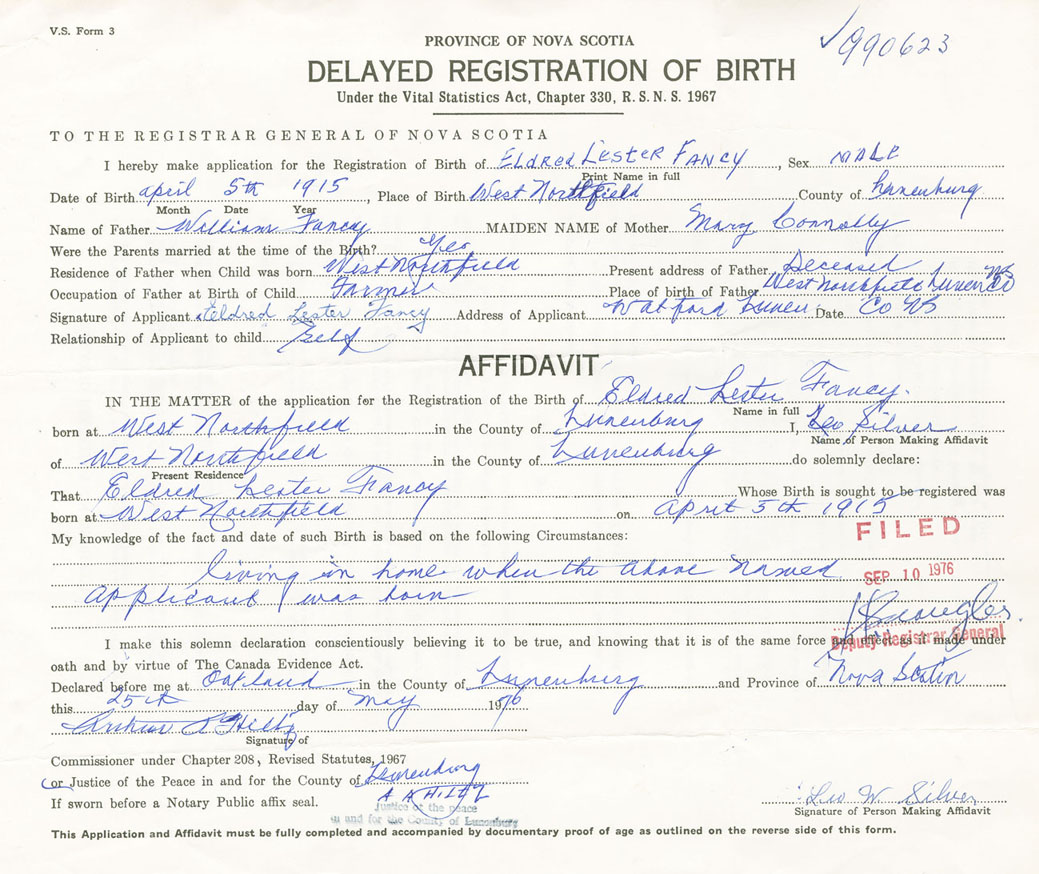 V.S. Form 3
✓990623
PROVINCE OF NOVA SCOTIA
DELAYED REGISTRATION OF BIRTH
Under the Vital Statistics Act, Chapter 330, R. S. N. S. 1967
TO THE REGISTRAR GENERAL OF NOVA SCOTIA
I hereby make application for the Registration of Birth of Eldred Lester Fancy, Sex MALE
Print Name in full
Date of Birth april 5th 1915, Place of Birth West Northfield County of Lunenburg
Month Date Year
Name of Father William Fancy MAIDEN NAME of Mother Mary Connolly
Were the Parents married at the time of the Birth? Yes
Residence of Father when Child was born West Northfield Present address of Father Deceased
Occupation of Father at Birth of Child Farmer Place of birth of Father West Northfield Lunen Co NS
Signature of Applicant Eldred Lester Fancy Address of Applicant Watford Lunen Date Co NS
Relationship of Applicant to child Self
AFFIDAVIT
IN THE MATTER of the application for the Registration of the Birth of Eldred Lester Fancy
Name in full
born at West Northfield in the County of Lunenburg I, Leo Silver
Name of Person Making Affidavit
of West Northfield in the County of Lunenburg do solemnly declare:
Present Residence
That Eldred Lester Fancy Whose Birth is sought to be registered was
born at West Northfield on april 5th 1915
My knowledge of the fact and date of such Birth is based on the following Circumstances:
FILED
living in home when the above named
SEP 10 1976
applicant was born
I make this solemn declaration conscientiously believing it to be true, and knowing that it is of the same force and effect as if made under
Deputy Registrar General
oath and by virtue of The Canada Evidence Act.
Declared before me at Oakland in the County of Lunenburg and Province of Nova Scotia
this 25th day of May 1976
Arthur A Hiltz
Signature of
Commissioner under Chapter 208, Revised Statutes, 1967
or Justice of the Peace in and for the County of Lunenburg
A A HILTZ
If sworn before a Notary Public affix seal.
Justice of the peace
in and for the County of Lunenburg
Leo W. Silver
Signature of Person Making Affidavit
This Application and Affidavit must be fully completed and accompanied by documentary proof of age as outlined on the reverse side of this form.